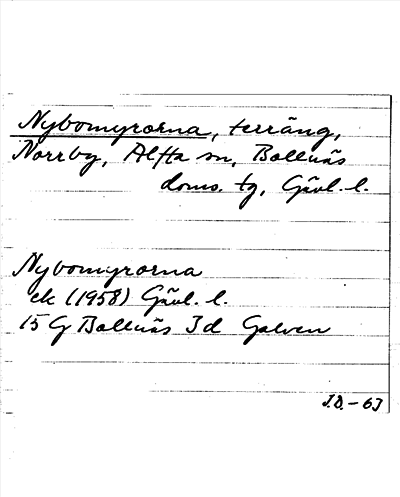 Nybomyrorna, terräng,
Norrby, Alfta sn, Bollnäs
doms. tg, Gävl. l.
Nybomyrorna
ek (1958) Gävl. l.
15 G Bollnäs 3d Galven
J.D. - 63